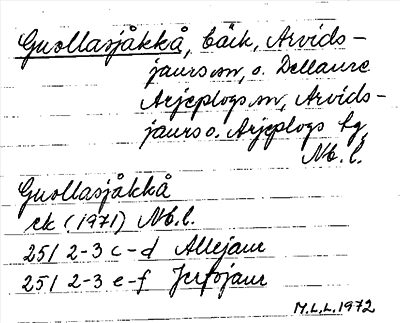 Guollasjåkkå, bäck, Arvids-
jaurs sn, o. Dellaure
Arjeplogs sn, Arvids-
jaurs o. Arjeplogs tg,
Nb. l.
Guollasjåkkå
ek (1971) Nb. l.
25I 2-3 c-d Allejaur
25I 2-3 e-f Jerfojaur
M.L.L. 1972